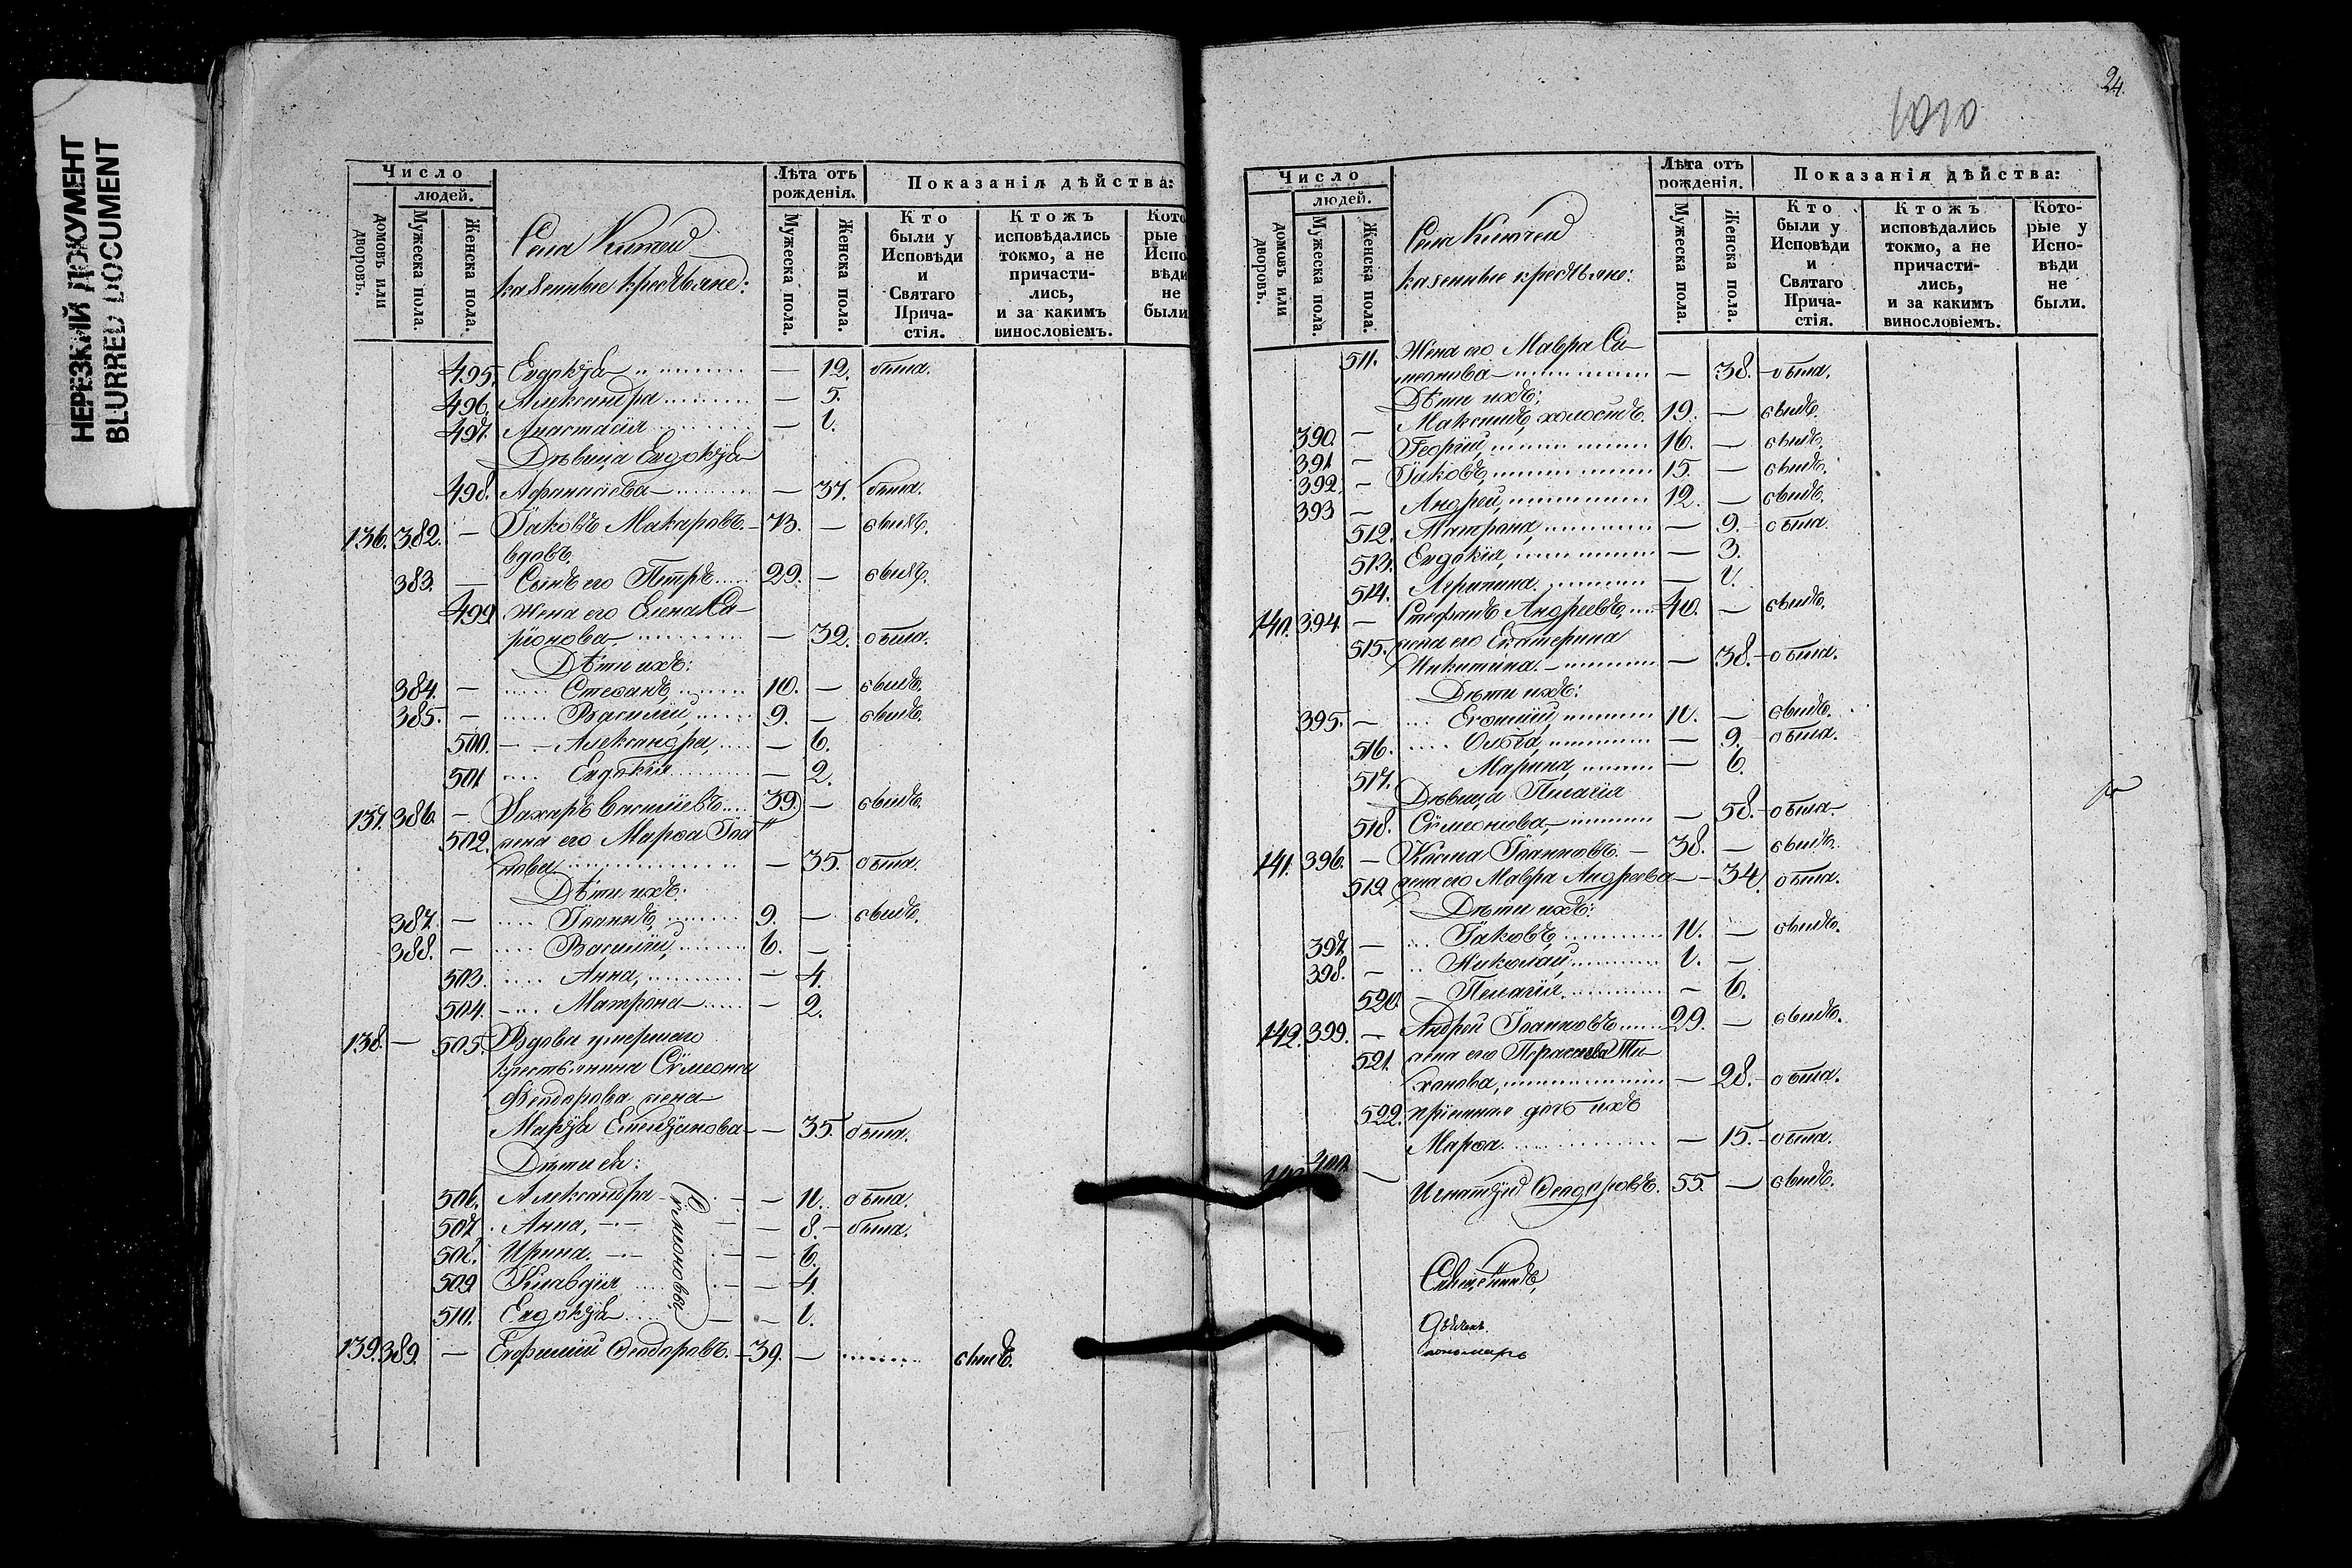 НЕРЕЗКИЙ ДОКУМЕНТ
BLURRED DOCUMENT
Число
людей.
домовъ или дворовъ.
Мужеска пола.
Женска пола.
Села
казенные крестьяне:
Лѣта отъ рожденія.
Мужеска пола.
Женска пола.
Показанія дѣйства:
Кто были у Исповѣди и Святаго Прича-стія.
Ктожъ исповѣдались токмо, а не причасти-лись, и за какимъ винословіемъ.
Кото
рые
Испо
вѣди
не
были
495. Евдокія — 12. была.
496. Александра — 5.
497. Анастасія — 1.
Дѣвица Евдокія
498. Афанасіева — 37. была.
136. 382. — Іаковъ Макаровъ — 73. — былъ.
вдовъ.
383. — Сынъ его Петръ 29. — былъ.
499. Жена его Елена Са-
ріонова — 32. была.
Дѣти ихъ:
384. — Стефанъ, 10. — былъ.
385. — Василій, 9. — былъ.
500. Александра, — 6.
501 Евдокія — 2.
137. 386. — Захаръ 39. — былъ.
502. жена его Марѳа Іоа-
нова — 35. была.
Дѣти ихъ:
387. — Іоаннъ, 9. — былъ.
388. — Василій, 6. —
503. Анна, — 4.
504. Матрона — 2.
138. — 505. Вдова умершаго
крестьянина Сѵмеона
Ѳеодорова жена
Марія — 35. была.
Дѣти ея:
506. Александра — 11. была.
507. Анна, — 8. была.
508. Ирина. — 6.
509. Клавдія — 4.
510. Евдокія — 1.
Сѵмеоновы
139. 389. — Евфимій Ѳеодоровъ. 39. — былъ.
24.
1010
Число
людей.
домовъ или дворовъ.
Мужеска пола.
Женска пола.
Села
казенные крестьяне:
Лѣта отъ рожденія.
Мужеска пола.
Женска пола.
Показанія дѣйства:
Кто были у Исповѣди и Святаго Прича-стія.
Ктожъ исповѣдались токмо, а не причасти-лись, и за какимъ винословіемъ.
Кото-рые у Испо-вѣди не были.
511. Жена его Мавра Си-
меонова — 38. была.
Дѣти ихъ:
390. — Максимъ, холостъ. 19. — былъ.
391 — Георгій, 16. — былъ.
392. — Іаковъ, 15. — былъ.
393 — Андрей, 12. — былъ.
512. Матрона, — 9. была.
513. Евдокія, — 3.
514. Агрипина. — 1.
140. 394. — Стефанъ Андреевъ, 40. — былъ.
515. жена его Екатерина
Никитина. — 38. была.
Дѣти ихъ:
395. — Евфимій, 11. — былъ.
516. Ольга, — 9. была.
517. Марина, — 6.
Дѣвица Пелагія
518. Сѵмеонова, — 58. была.
141. 396. — Косма Іоанновъ. — 38. — былъ.
519 жена его Мавра Андреева — 34. была.
Дѣти ихъ:
397. — Іаковъ, 11. — былъ.
398. — Николай, 1. —
520. — Пелагія, — 6.
142. 399. — Андрей Іоанновъ 29. — былъ.
521. жена его Параскева Ти-
ханова, — 28. была.
522. пріемная дочь ихъ
Марѳа — 15. была.
400. — Игнатій Ѳеодоровъ. 55. — былъ.
Священникъ,
Пономарь